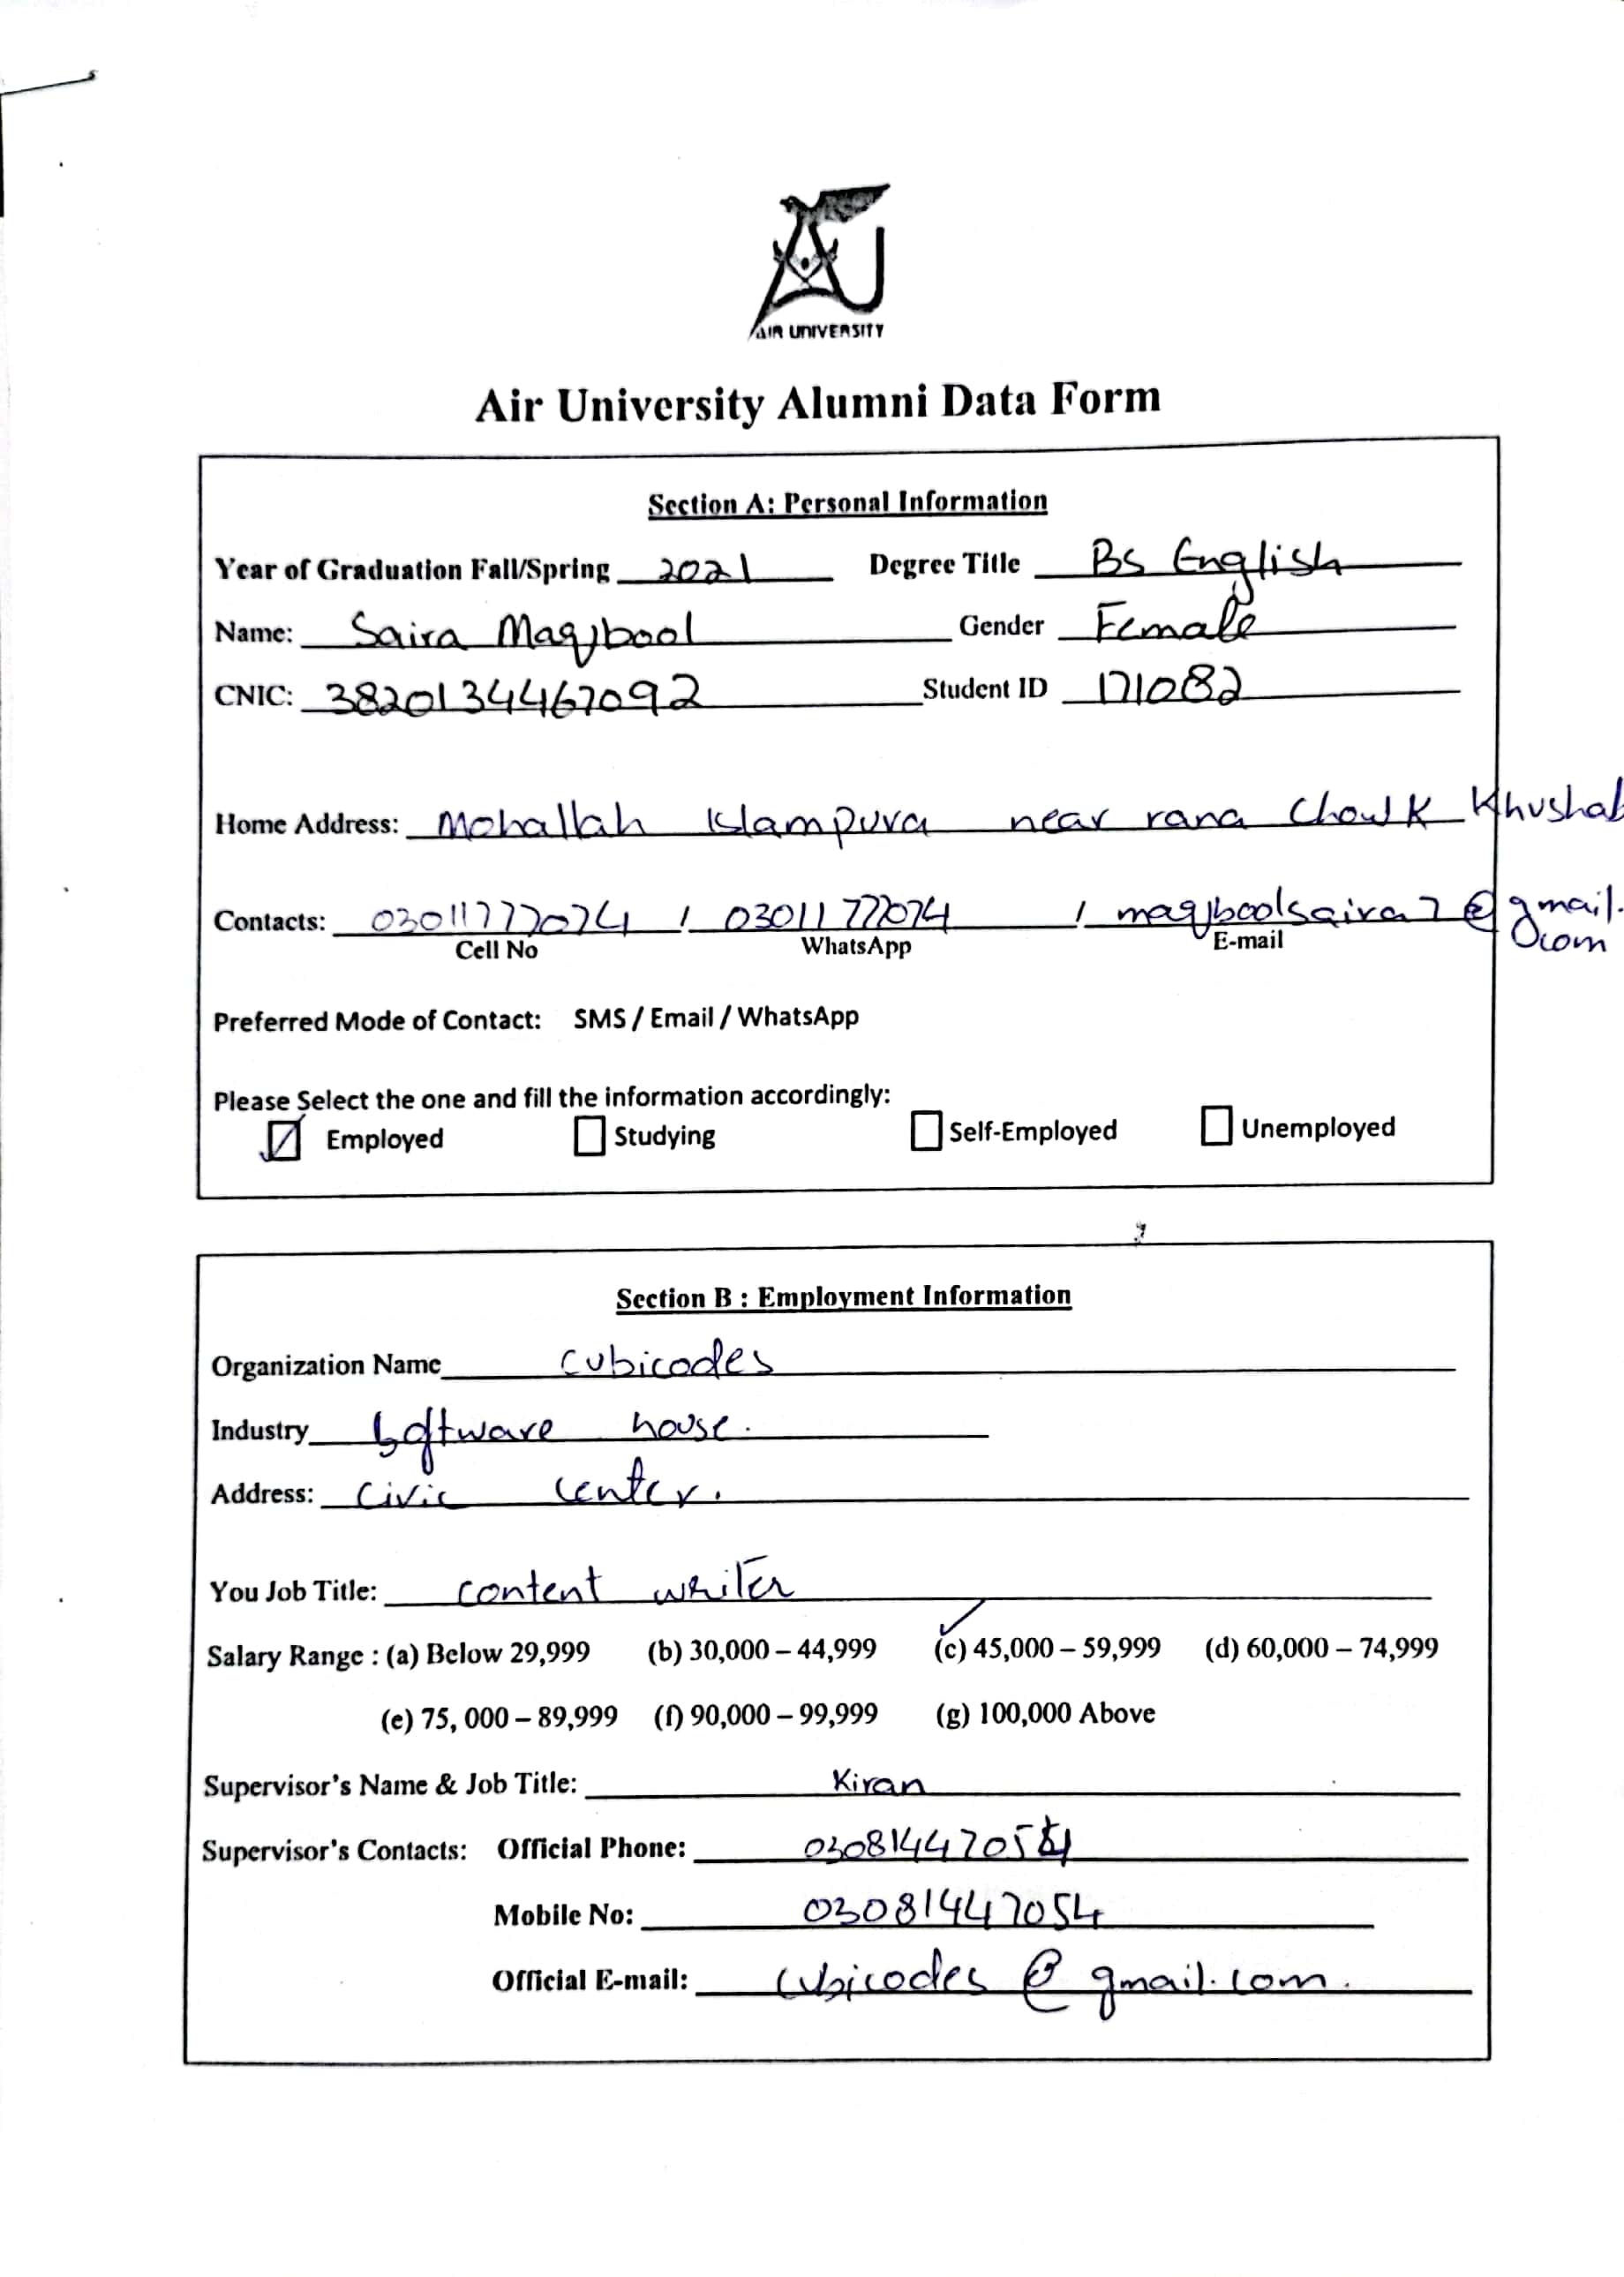 AIR UNIVERSITY
Air University Alumni Data Form
Section A: Personal Information
Year of Graduation Fall/Spring 2021 Degree Title BS English
Name: Saira Maqbool Gender Female
CNIC: 3820134467092 Student ID 171082
Home Address: Mohallah Islampura near rana Chowk Khushab
Contacts: 03011777074 / 03011777074 / maqboolsaira7@gmail.
com
Cell No WhatsApp E-mail
Preferred Mode of Contact: SMS / Email / WhatsApp
Please Select the one and fill the information accordingly:
Employed Studying Self-Employed Unemployed
Section B : Employment Information
Organization Name cubicodes
Industry Software house.
Address: Civic center.
You Job Title: content writer
Salary Range : (a) Below 29,999 (b) 30,000 – 44,999 (c) 45,000 – 59,999 (d) 60,000 – 74,999
(e) 75, 000 – 89,999 (f) 90,000 – 99,999 (g) 100,000 Above
Supervisor's Name & Job Title: Kiran
Supervisor's Contacts: Official Phone: 03081447054
Mobile No: 03081447054
Official E-mail: cubicodes @ gmail.com.